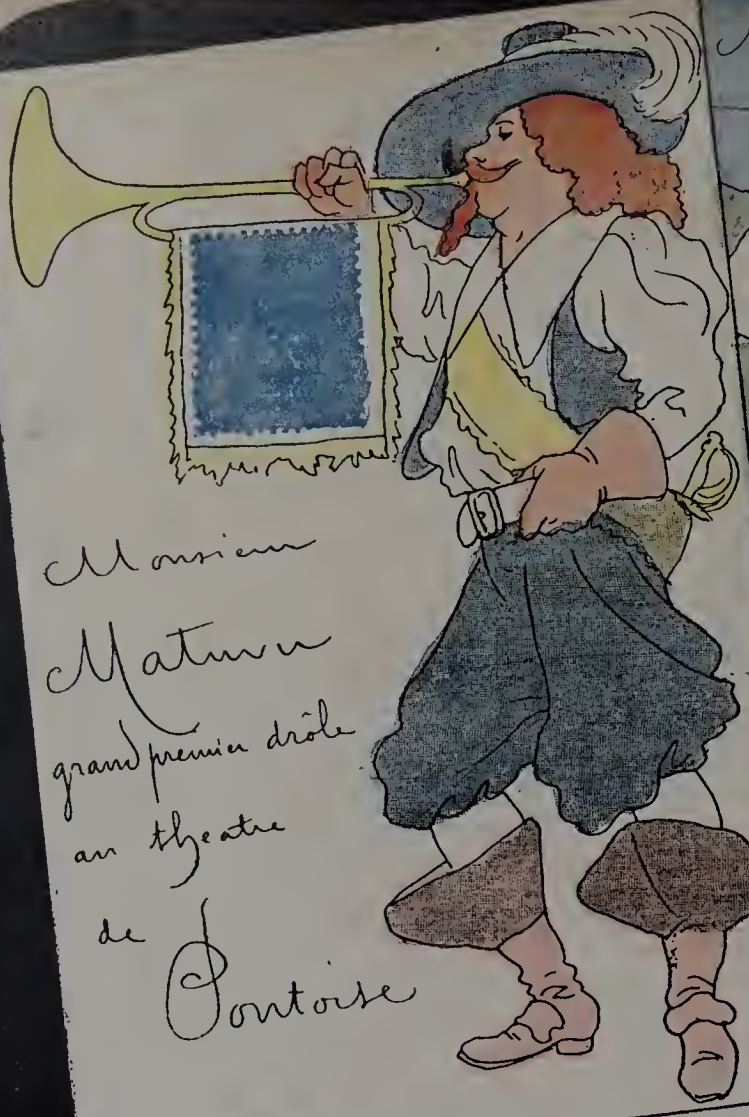 Monsieur
Maturin
grand premier drôle
au theatre
de
Pontoise